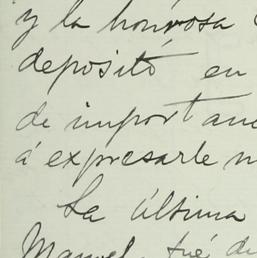 y la honrosa
depositó en
de importan
á expresarle
La última
Manuel, fué de